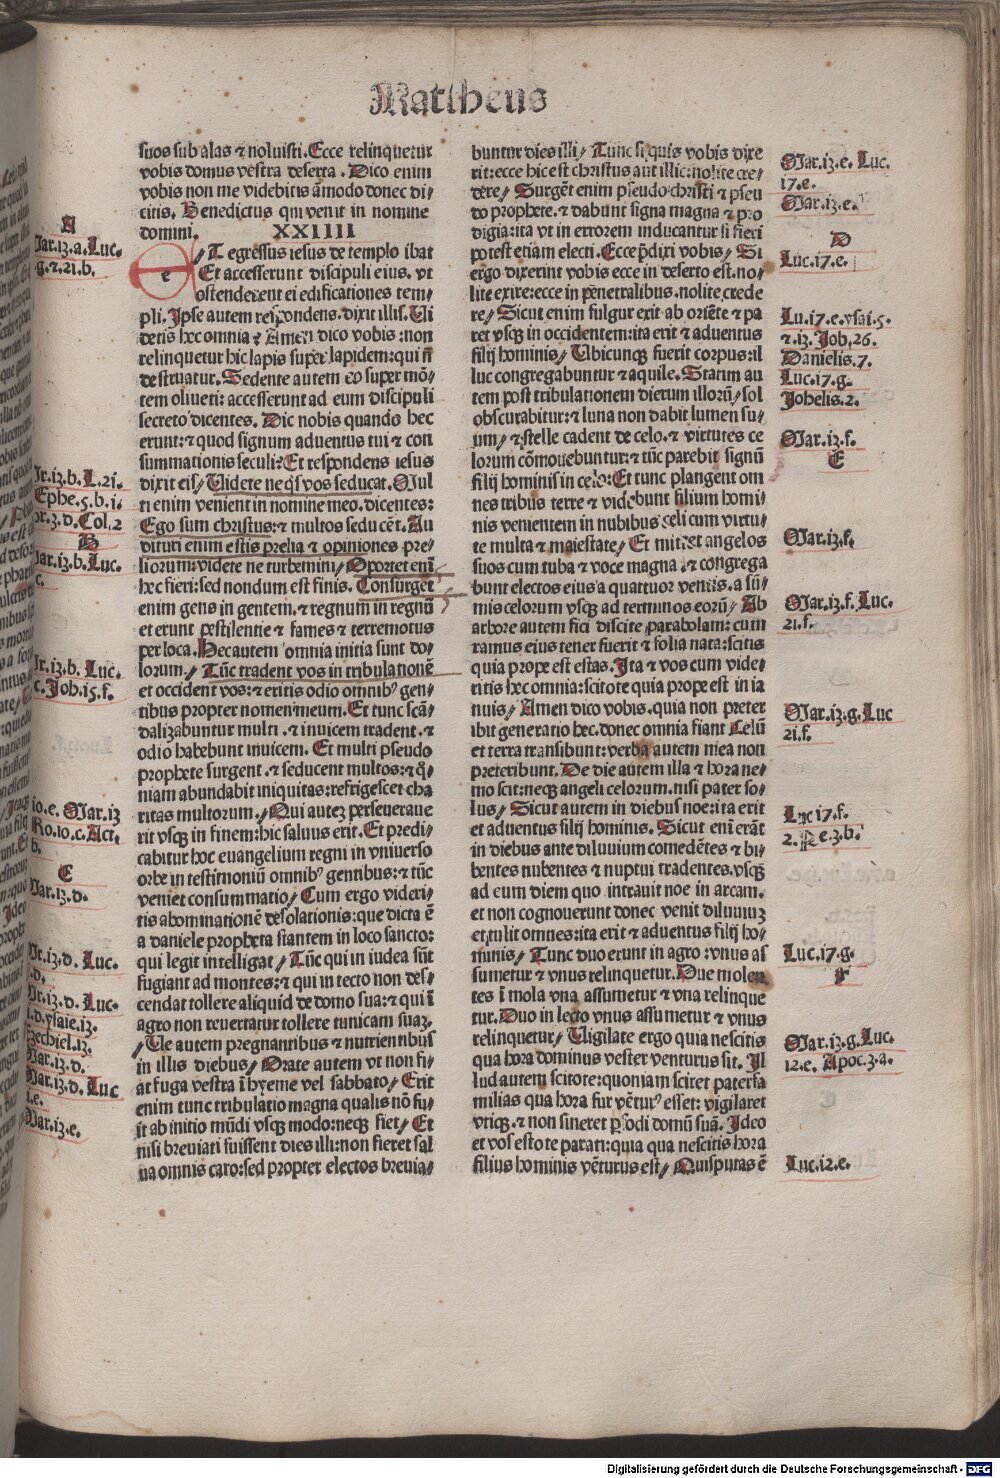 Mattheus
suos sub alas ⁊ noluisti. Ecce relinquetur
vobis domus vestra deserta. Dico enim
vobis non me videbitis āmodo donec di⸗
citis. Benedictus qui venit in nomine
domini. XXIIII
eT egressus iesus de templo ibat
Et accesserunt discipuli eius. vt
ostenderent ei edificationes tem⸗
pli. Ipse autem respondens. dixit illis. Vi
detis hec omnia ⁊ Amen dico vobis: non
relinquetur hic lapis super lapidem: qui nō
destruatur. Sedente autem eo super mō⸗
tem oliueti: accesserunt ad eum discipuli
secreto dicentes. Dic nobis quando hec
erunt: ⁊ quod signum aduentus tui ⁊ con
summationis seculi? Et respondens iesus
dixit eis/ Videte ne q̄s vos seducat. Mul
ti enim venient in nomine meo. dicentes:
Ego sum christus: ⁊ multos seducēt. Au
dituri enim estis prelia ⁊ opiniones pre⸗
liorum: videte ne turbemini/ Oportet enī
hec fieri: sed nondum est finis. Consurget
enim gens in gentem. ⁊ regnum in regnū
et erunt pestilentie ⁊ fames ⁊ terremotus
per loca. Hec autem omnia initia sunt do⸗
lorum/ Tūc tradent vos in tribulationē
et occident vos: ⁊ eritis odio omnibꝰ gen⸗
tibus propter nomen meum. Et tunc scā⸗
dalizabuntur multi. ⁊ inuicem tradent. ⁊
odio habebunt inuicem. Et multi pseudo
prophete surgent. ⁊ seducent multos: ⁊ q̄⸗
niam abundabit iniquitas: refrigescet cha
ritas multorum. Qui autez perseueraue
rit vsqꝫ in finem: hic saluus erit. Et predi⸗
cabitur hoc euangelium regni in vniuerso
orbe in testimoniū omnibꝰ gentibus: ⁊ tūc
veniet consummatio/ Cum ergo videri⸗
tis abominationē desolationis: que dicta ē
a daniele propheta stantem in loco sancto:
qui legit intelligat/ Tūc qui in iudea sūt
fugiant ad montes: ⁊ qui in tecto non des⸗
cendat tollere aliquid de domo sua: ⁊ qui ī
agro non reuertatur tollere tunicam suaz.
Ve autem pregnantibus ⁊ nutrientibus
in illis diebus/ Orate autem vt non fi⸗
at fuga vestra ī hyeme vel sabbato/ Erit
enim tunc tribulatio magna qualis nō fu⸗
it ab initio mūdi vsqꝫ modo: neqꝫ fiet/ Et
nisi breuiati fuissent dies illi: non fieret sal
ua omnis caro: sed propter electos breuia⸗
buntur dies illi/ Tunc si quis vobis dixe
rit: ecce hic est christus aut illic: nolite cre⸗
dere/ Surgēt enim pseudo christi ⁊ pseu
do prophete. ⁊ dabunt signa magna ⁊ pro
digia: ita vt in errorem inducantur si fieri
potest etiam electi. Ecce p̄dixi vobis/ Si
ergo dixerint vobis ecce in deserto est. no⸗
lite exire: ecce in penetralibus. nolite crede
re/ Sicut enim fulgur exit ab oriēte ⁊ pa
ret vsqꝫ in occidentem: ita erit ⁊ aduentus
filij hominis/ Vbicunqꝫ fuerit corpus: il
luc congregabuntur ⁊ aquile. Statim au
tem post tribulationem dierum illorū/ sol
obscurabitur: ⁊ luna non dabit lumen su⸗
um/ ⁊ stelle cadent de celo. ⁊ virtutes ce
lorum cōmouebuntur: ⁊ tūc parebit signū
filij hominis in celo: Et tunc plangent om
nes tribus terre ⁊ videbunt filium homi⸗
nis venientem in nubibus celi cum virtu⸗
te multa ⁊ maiestate/ Et mittet angelos
suos cum tuba ⁊ voce magna. ⁊ congrega
bunt electos eius a quattuor ventis. a sū⸗
mis celorum vsqꝫ ad terminos eorū/ Ab
arbore autem fici discite parabolam: cum
ramus eius tener fuerit ⁊ folia nata: scitis
quia prope est estas. Ita ⁊ vos cum vide⸗
ritis hec omnia: scitote quia prope est in ia
nuis/ Amen dico vobis. quia non preter
ibit generatio hec. donec omnia fiant Celū
et terra transibunt: verba autem mea non
preteribunt. De die autem illa ⁊ hora ne⸗
mo scit: neqꝫ angeli celorum. nisi pater so⸗
lus/ Sicut autem in diebus noe: ita erit
et aduentus filij hominis. Sicut enī erāt
in diebus ante diluuium comedētes ⁊ bi⸗
bentes nubentes ⁊ nuptui tradentes. vsqꝫ
ad eum diem quo intrauit noe in arcam.
et non cognouerunt donec venit diluuiuz
et tulit omnes: ita erit ⁊ aduentus filij ho⸗
minis/ Tunc duo erunt in agro: vnus as
sumetur ⁊ vnus relinquetur. Due molen
tes ī mola vna assumetur ⁊ vna relinque
tur. Duo in lecto vnus assumetur ⁊ vnus
relinquetur/ Vigilate ergo quia nescitis
qua hora dominus vester venturus sit. Il
lud autem scitote: quoniam si sciret paterfa
milias qua hora fur vēturꝰ esset: vigilaret
vtiqꝫ. ⁊ non sineret ꝑfodi domū suā. Ideo
et vos estote parati: quia qua nescitis hora
filius hominis vēturus est/ Quis putas ē
A
Mar.13.a. Luc.
B
C
Mar.13.d.
Mar.13.e.
Mar.13.e. Luc.
17.e.
Mar.13.e.
D
Luc.17.e.
Lu.17.e. ysai.5.
⁊.13. Joh.26.
Danielis.7.
Luc.17.g.
Johelis.2.
Mar.13.f.
E
Mar.13.f.
Mar.13.f. Luc.
21.f.
Mar.13.g. Luc
21.f.
Luc 17.f.
2. Pe.3.b.
Luc.17.g.
F
Mar.13.g. Luc.
12.e. Apoc.3.a.
Luc.12.e.
Digitalisierung gefördert durch die Deutsche Forschungsgemeinschaft - DFG